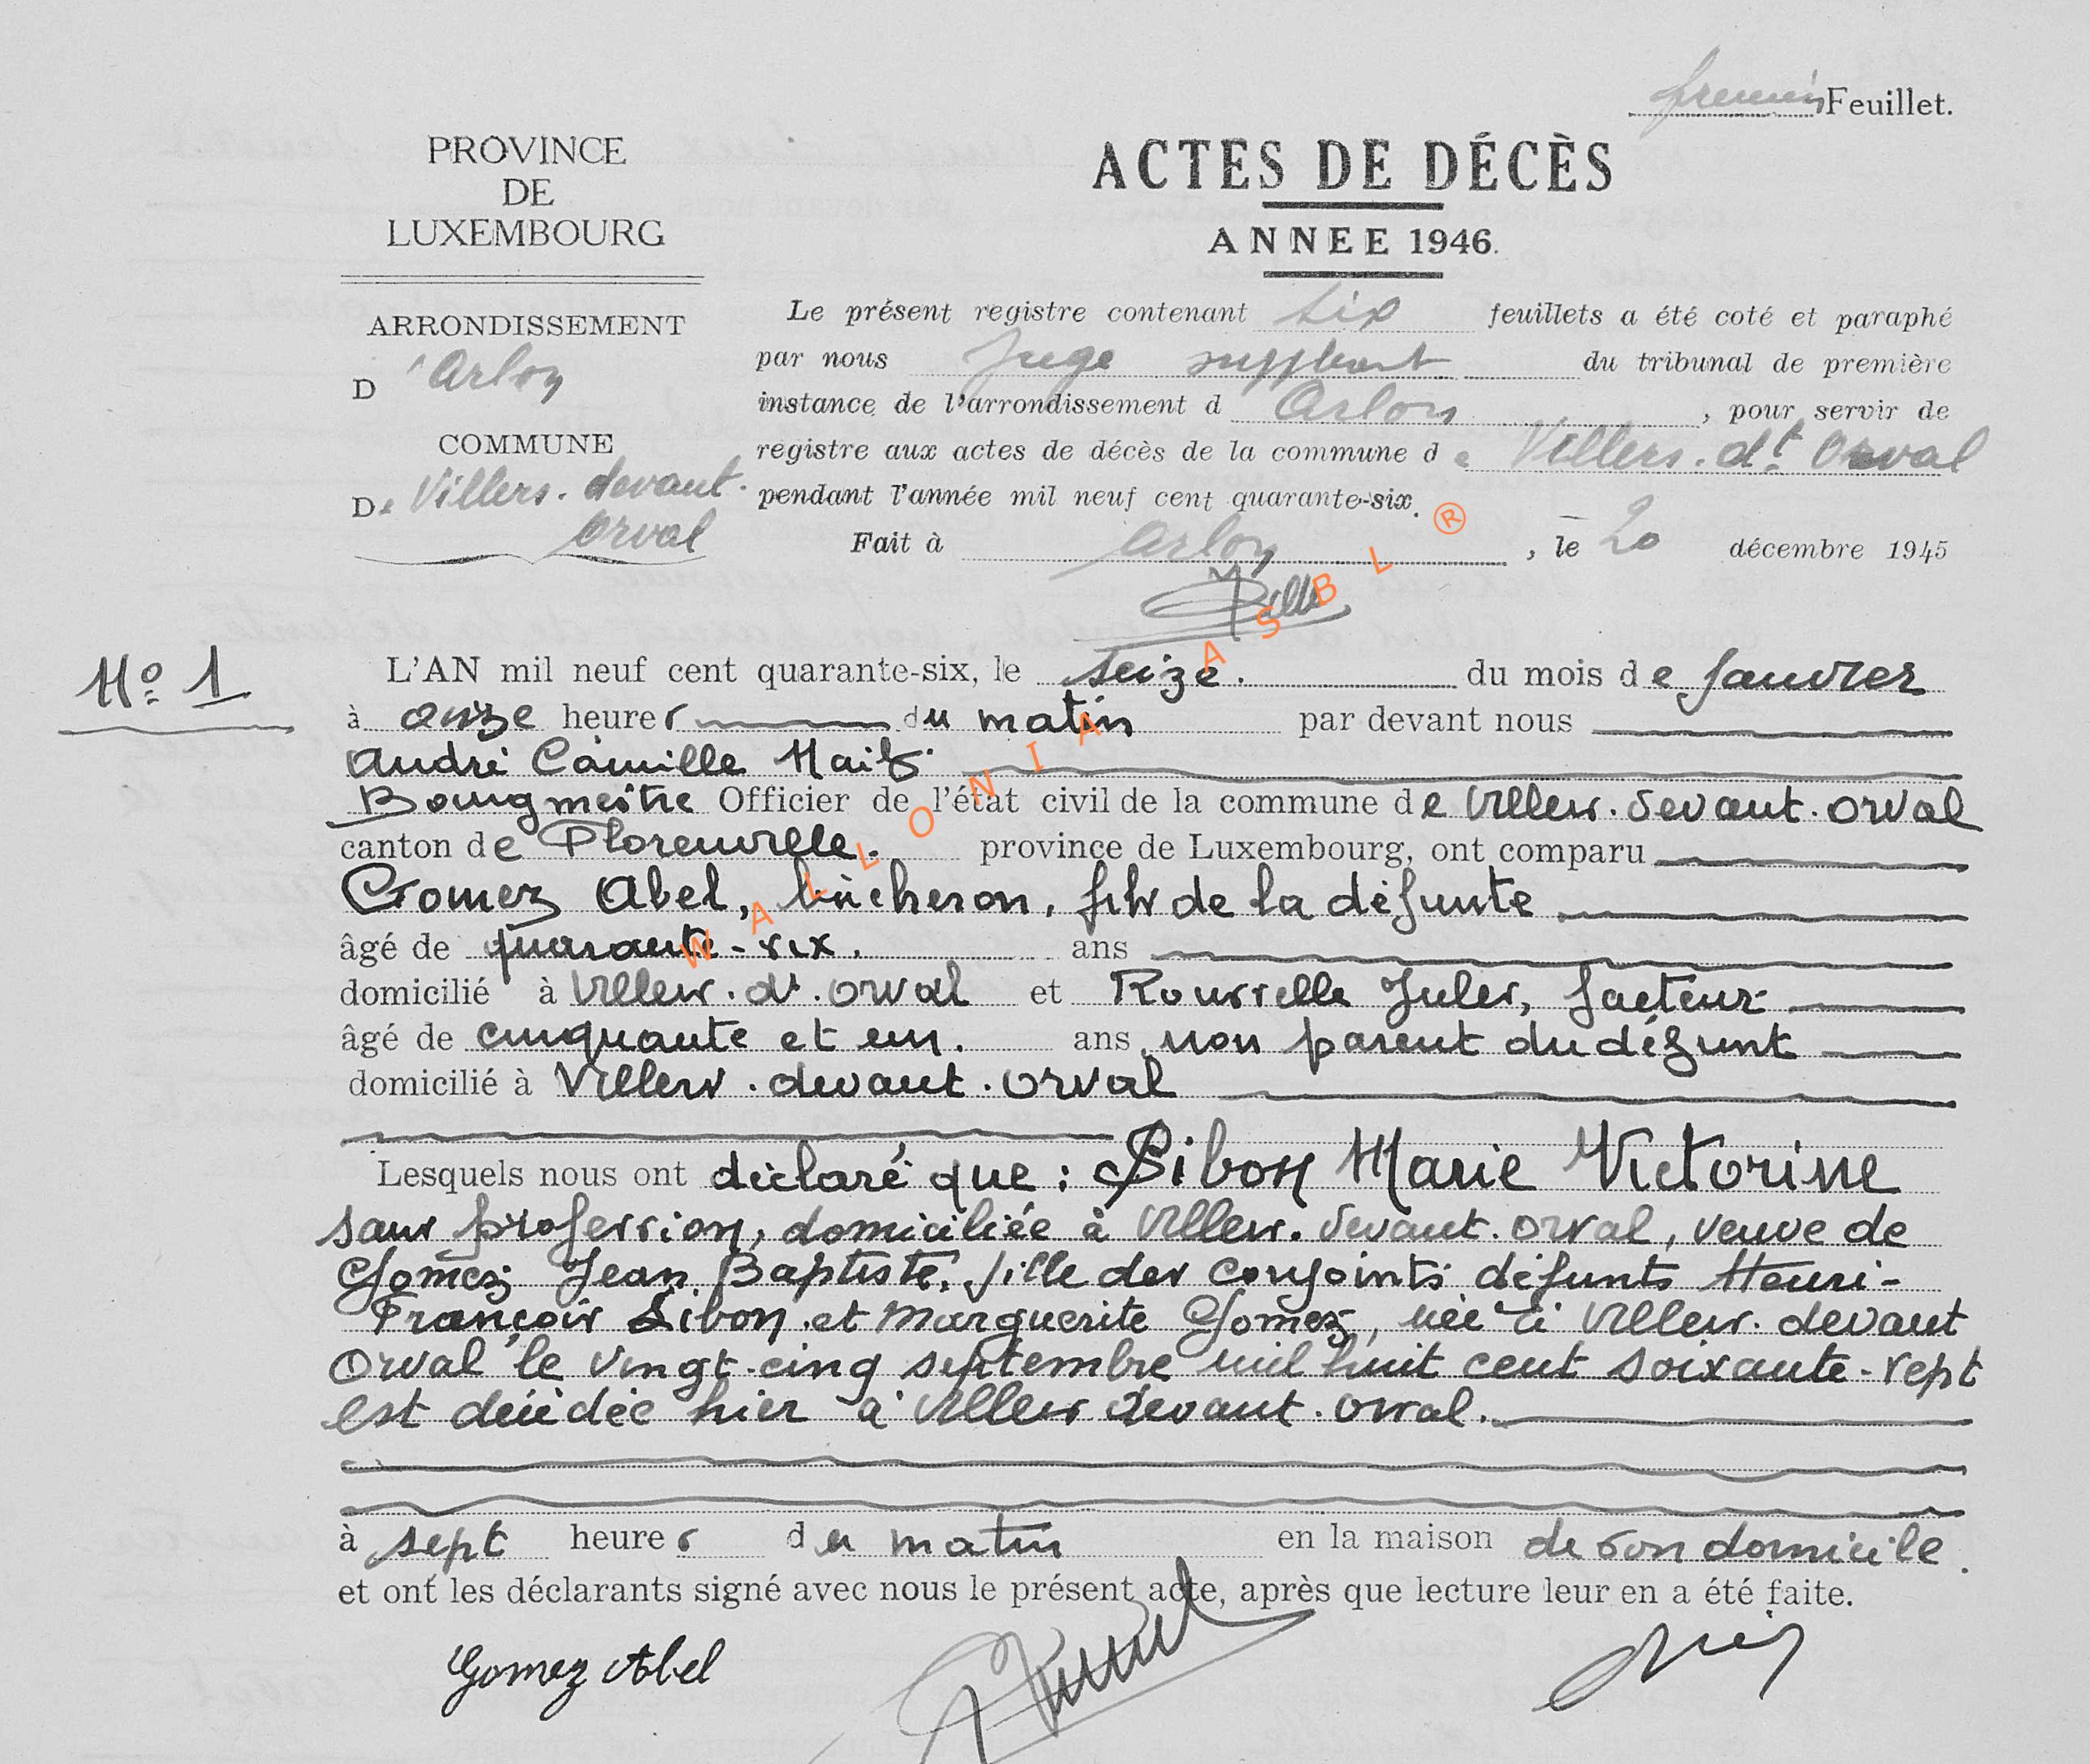 premier Feuillet.
PROVINCE
DE
LUXEMBOURG
ACTES DE DÉCÈS
ANNEE 1946.
ARRONDISSEMENT
D'Arlon
COMMUNE
De Villers-devant-
Orval
Le présent registre contenant six feuillets a été coté et paraphé
par nous Juge suppléant du tribunal de première
instance de l'arrondissement d Arlon, pour servir de
registre aux actes de décès de la commune de Villers-dt Orval
pendant l'année mil neuf cent quarante-six.
Fait à Arlon, le 20 décembre 1945
WALLONIA ASBL ®
No 1
L'AN mil neuf cent quarante-six, le seize. du mois de Janvier
à onze heures du matin par devant nous
André Camille
Bourgmestre Officier de l'état civil de la commune de Villers-devant-Orval
canton de Florenville. province de Luxembourg, ont comparu
Gomez Abel, bûcheron, fils de la défunte
âgé de quarante-six. ans
domicilié à Villers-dt-Orval et Rousselle Jules, facteur
âgé de cinquante et un. ans, non parent du défunt
domicilié à Villers-devant-Orval
Lesquels nous ont déclaré que : Sibon Marie Victorine
sans profession, domiciliée à Villers-devant-Orval, veuve de
Gomez Jean Baptiste, fille des conjoints défunts Henri-
François Sibon et Marguerite Gomez, née à Villers-devant
Orval le vingt-cinq septembre mil huit cent soixante-sept
est décédée hier à Villers devant-Orval.
à sept heures du matin en la maison de son domicile.
et ont les déclarants signé avec nous le présent acte, après que lecture leur en a été faite.
Gomez Abel